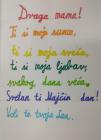 Draga mama!
Ti si moje sunce,
ti si moja sreća,
ti si moja ljubav,
svakog dana veća.
Sretan ti Majčin dan!
Voli te tvoja Lea.